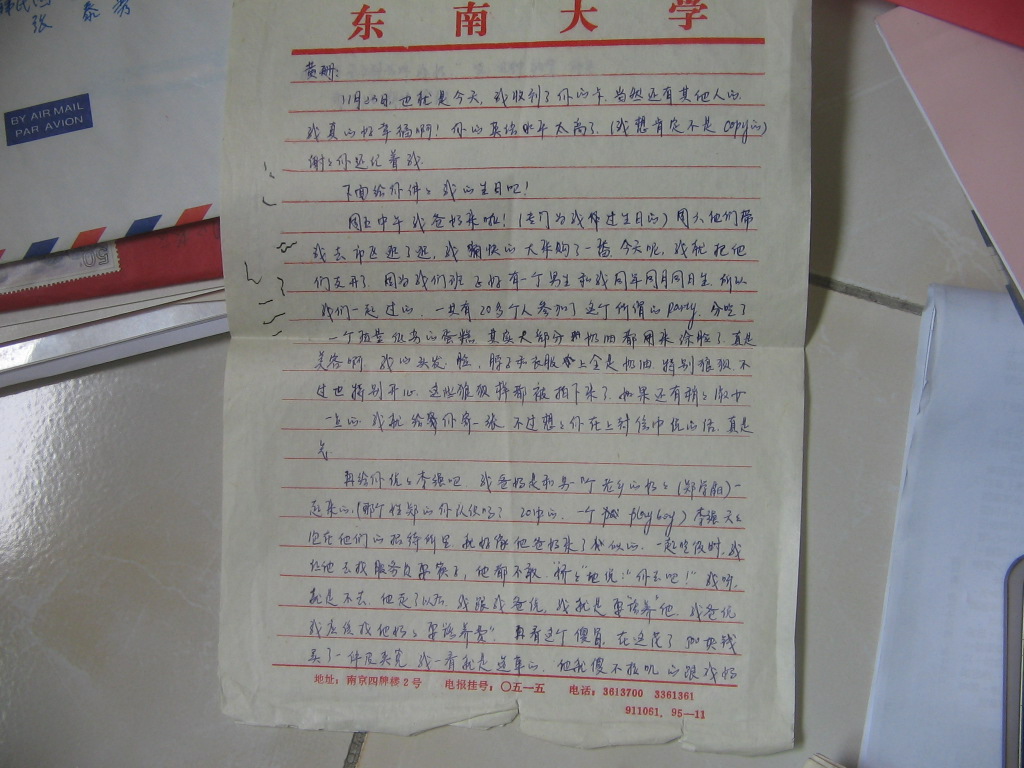 张 泰 芳
BY AIR MAIL
PAR AVION
50
东 南 大 学
黄珊：
11月23日，也就是今天，我收到了你的卡，当然还有其他人的，
我真的好幸福啊！你的英语水平太高了，（我想肯定不是copy的）
谢谢你还记着我．
下面给你侃侃我的生日吧！
周五中午我爸妈来啦！（专门为我伴过生日的）周六他们带
我去市区逛了逛，我痛快的大采购了一番，今天呢，我就把他
们支开了，因为我们班正好有一个男生和我同年同月同日生，所以
我们一起过的，一共有20多个人参加了这个所谓的party，分吃了
一个蛋糕，其实大部分奶油都用来涂脸了，真是
美容啊，我的头发，脸，脖子和衣服上全是奶油，特别狼狈，不
过也特别开心，这些狼狈样都被拍下来了，如果还有稍稍淑女
一点的，我就给你寄一张，不过想想你在上封信中说的话，真是
气
再给你说说李强吧，我爸妈是和另一个老乡的妈妈（郑）一
起来的，（那个姓郑的你认识吗？20中的，一个 playboy）李强天天
泡在他们的招待所里，就好像他爸妈来了似的，一起吃饭时，我
让他去找服务员要饭，他都不敢，"娇"地说："你去吧！"我呀，
就是不去，他走了以后，我跟我爸说，我就是要"培养"他，我爸说
我应该找他妈妈要"培养费"，再看这个傻冒，在这花了500块钱
买了一件皮夹克，我一看就是造革的，他就傻不拉叽的跟我妈
地址：南京四牌楼2号 电报挂号：〇五一五 电话：3613700 3361361
911061．95—11